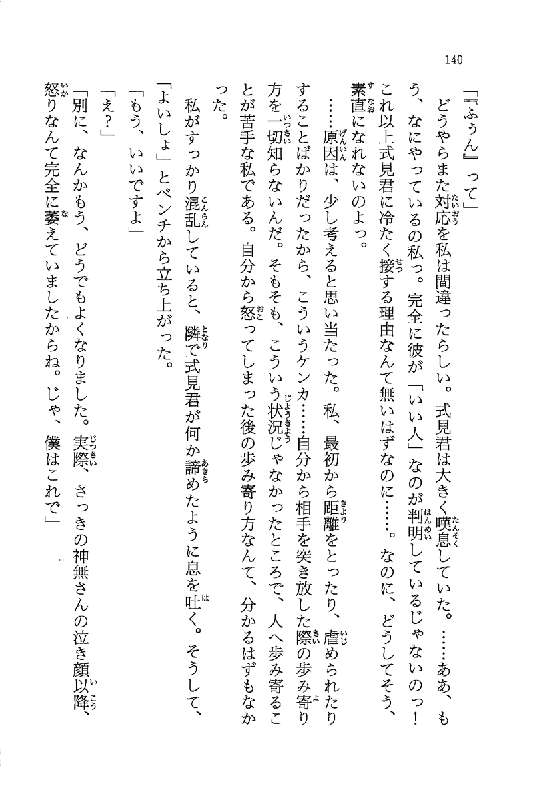 140
「『ふぅん』って」
どうやらまた対応を私は間違ったらしい。式見君は大きく嘆息していた。……ああ、も
う、なにやっているの私っ。完全に彼が「いい人」なのが判明しているじゃないのっ！
これ以上式見君に冷たく接する理由なんて無いはずなのに……。なのに、どうしてそう、
素直になれないのよっ。
……原因は、少し考えると思い当たった。私、最初から距離をとったり、虐められたり
することばかりだったから、こういうケンカ……自分から相手を突き放した際の歩み寄り
方を一切知らないんだ。そもそも、こういう状況じゃなかったところで、人へ歩み寄るこ
とが苦手な私である。自分から怒ってしまった後の歩み寄り方なんて、分かるはずもなか
った。
私がすっかり混乱していると、隣で式見君が何か諦めたように息を吐く。そうして、
「よいしょ」とベンチから立ち上がった。
「もう、いいですよ」
「え？」
「別に、なんかもう、どうでもよくなりました。実際、さっきの神無さんの泣き顔以降、
怒りなんて完全に萎えていましたからね。じゃ、僕はこれで」